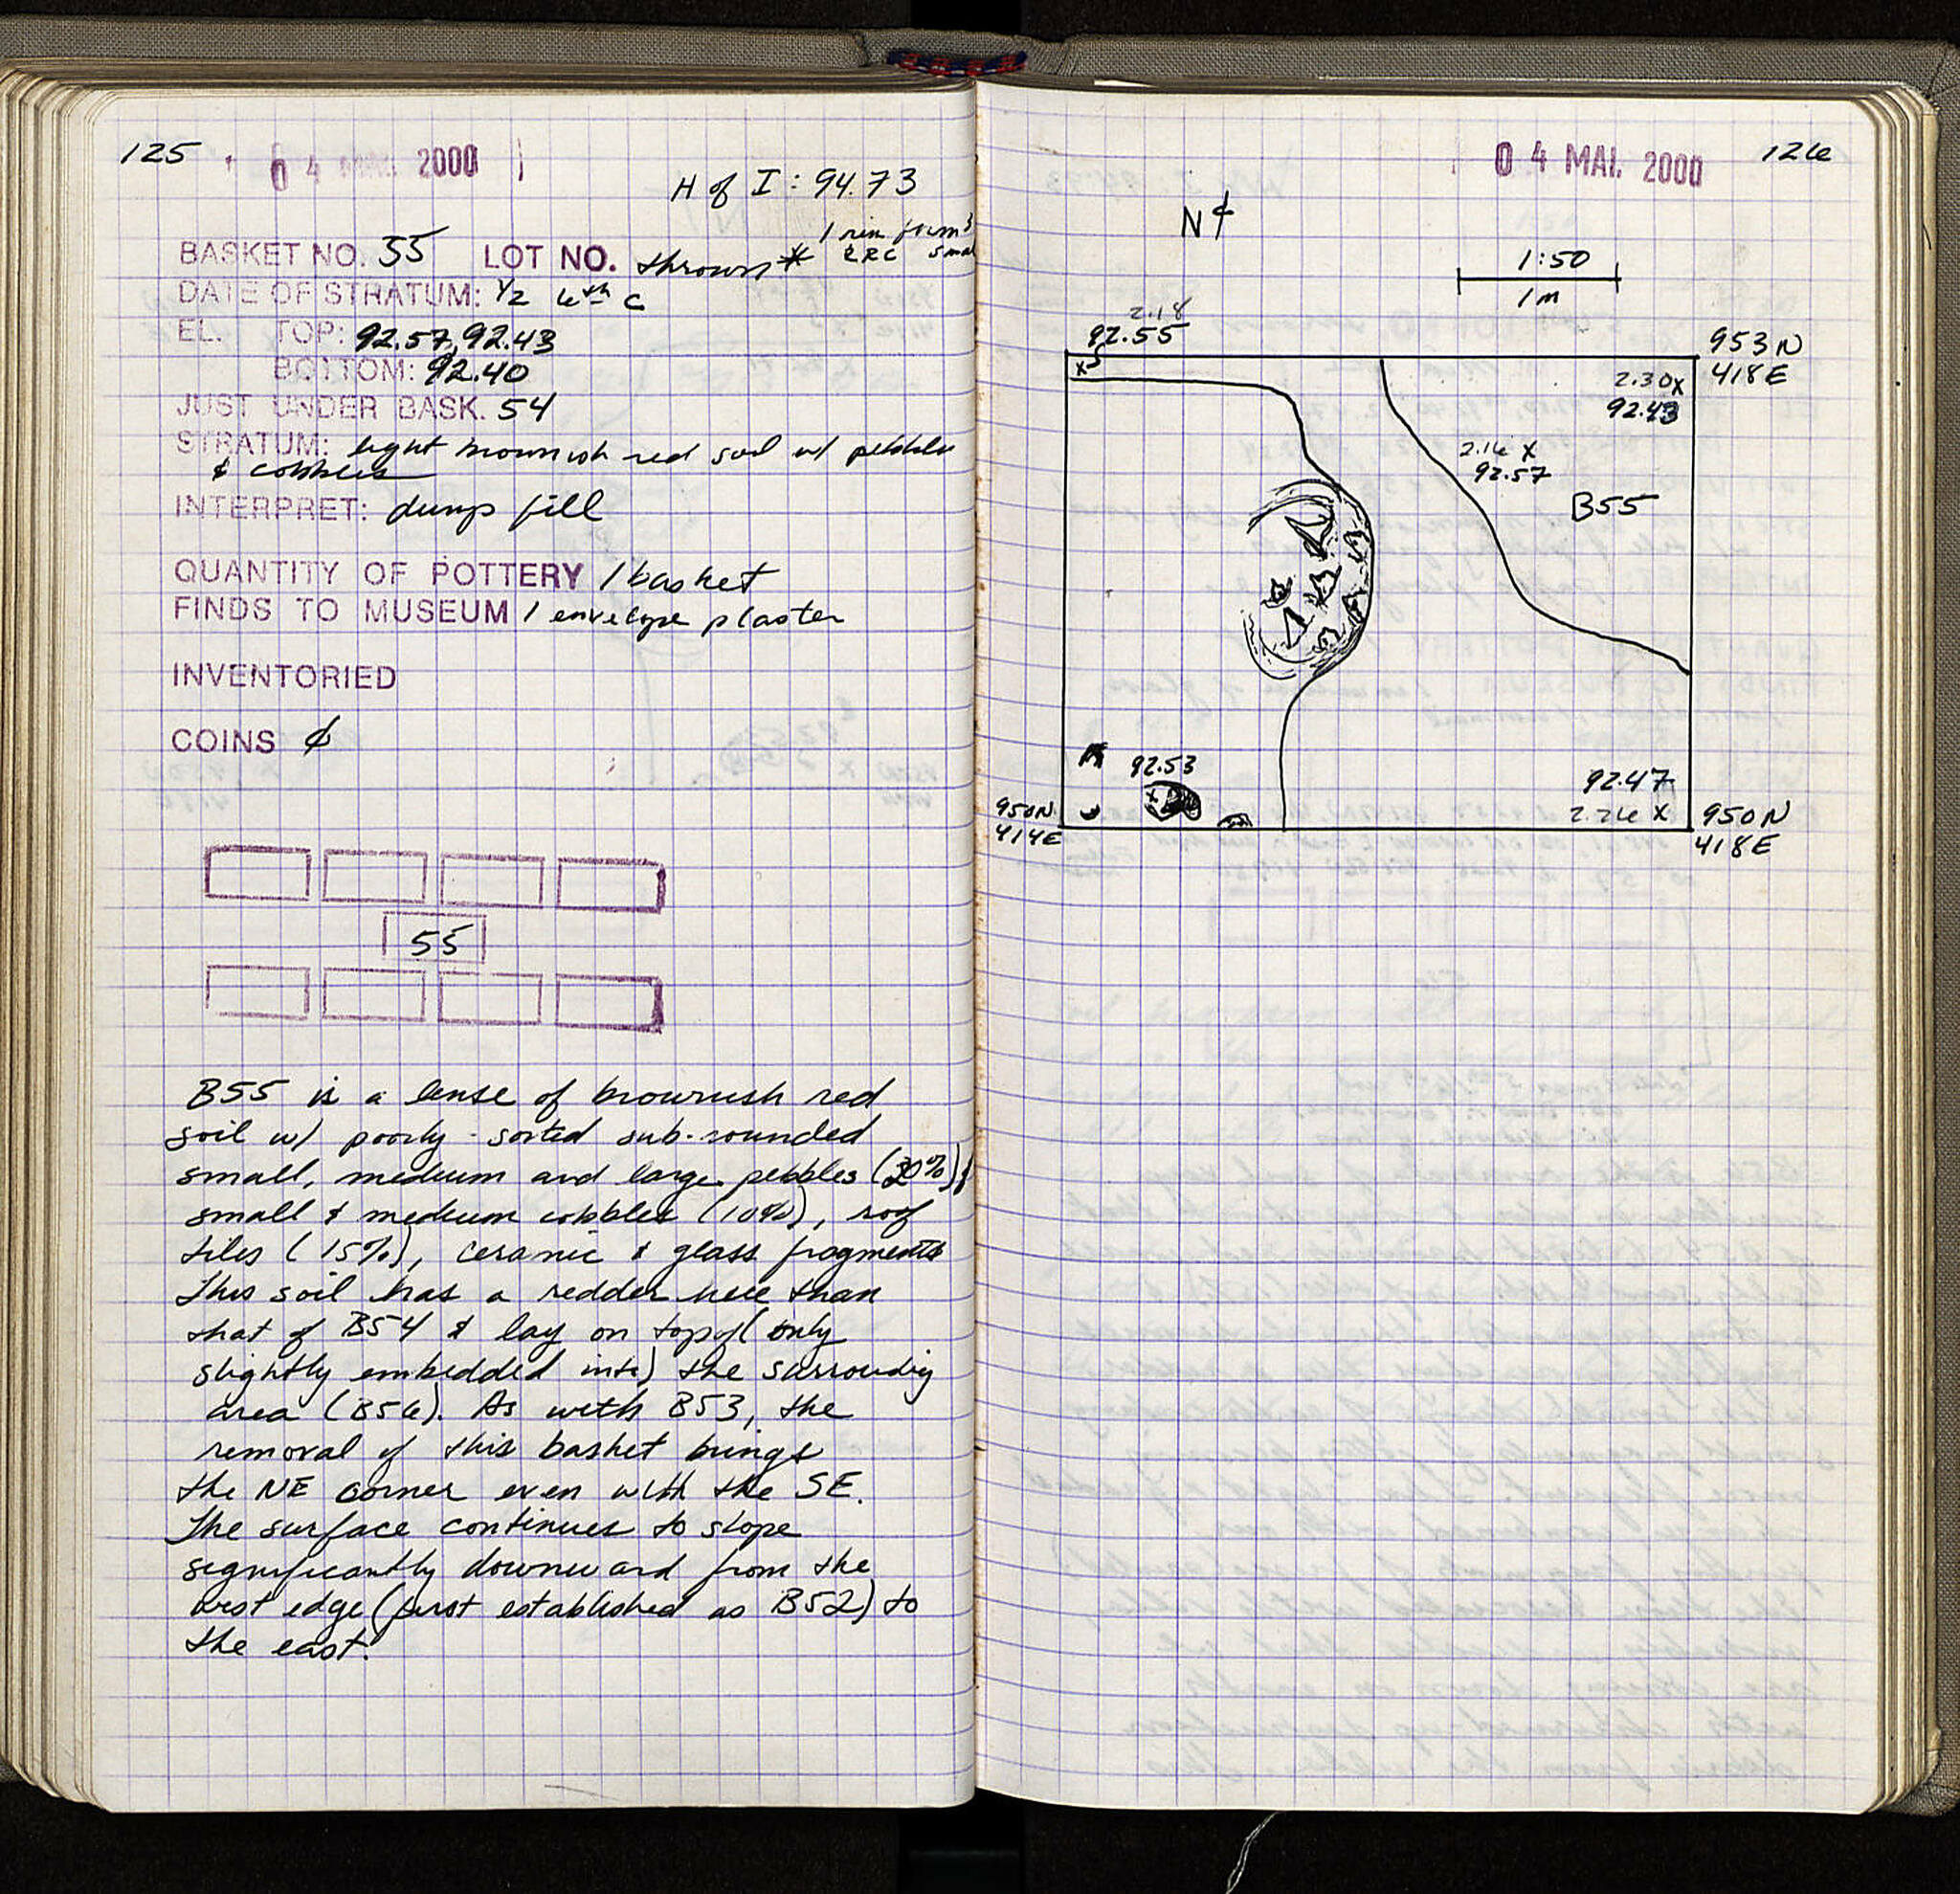 125
04 2000
H of I : 94.73
1 rim
BASKET NO. 55 LOT NO. thrown *
DATE OF STRATUM: 1/2 6th C
EL. TOP: 92.57, 92.43
BOTTOM: 92.40
JUST UNDER BASK. 54
STRATUM: light brownish red soil w/ pebbles
& cobbles
INTERPRET: dump fill
QUANTITY OF POTTERY 1 basket
FINDS TO MUSEUM 1 envelope plaster
INVENTORIED
COINS ∅
55
B55 is a lense of brownish red
soil w/ poorly-sorted sub-rounded
small, medium and large pebbles (30%) &
small & medium cobbles (10%), roof
tiles (15%), ceramic & glass fragments
This soil has a redder hue than
that of B54 & lay on top of (only
slightly embedded into) the surrounding
area (B56). As with B53, the
removal of this basket brings
the NE corner even with the SE.
The surface continues to slope
significantly downward from the
west edge (first established as B52) to
the east.
04 MAI. 2000
126
N
1:50
1m
2.18
92.55
953 N
418 E
2.30 x
92.43
2.16 x
92.57
B55
92.53
92.47
2.26 x
950 N
414 E
950 N
418 E